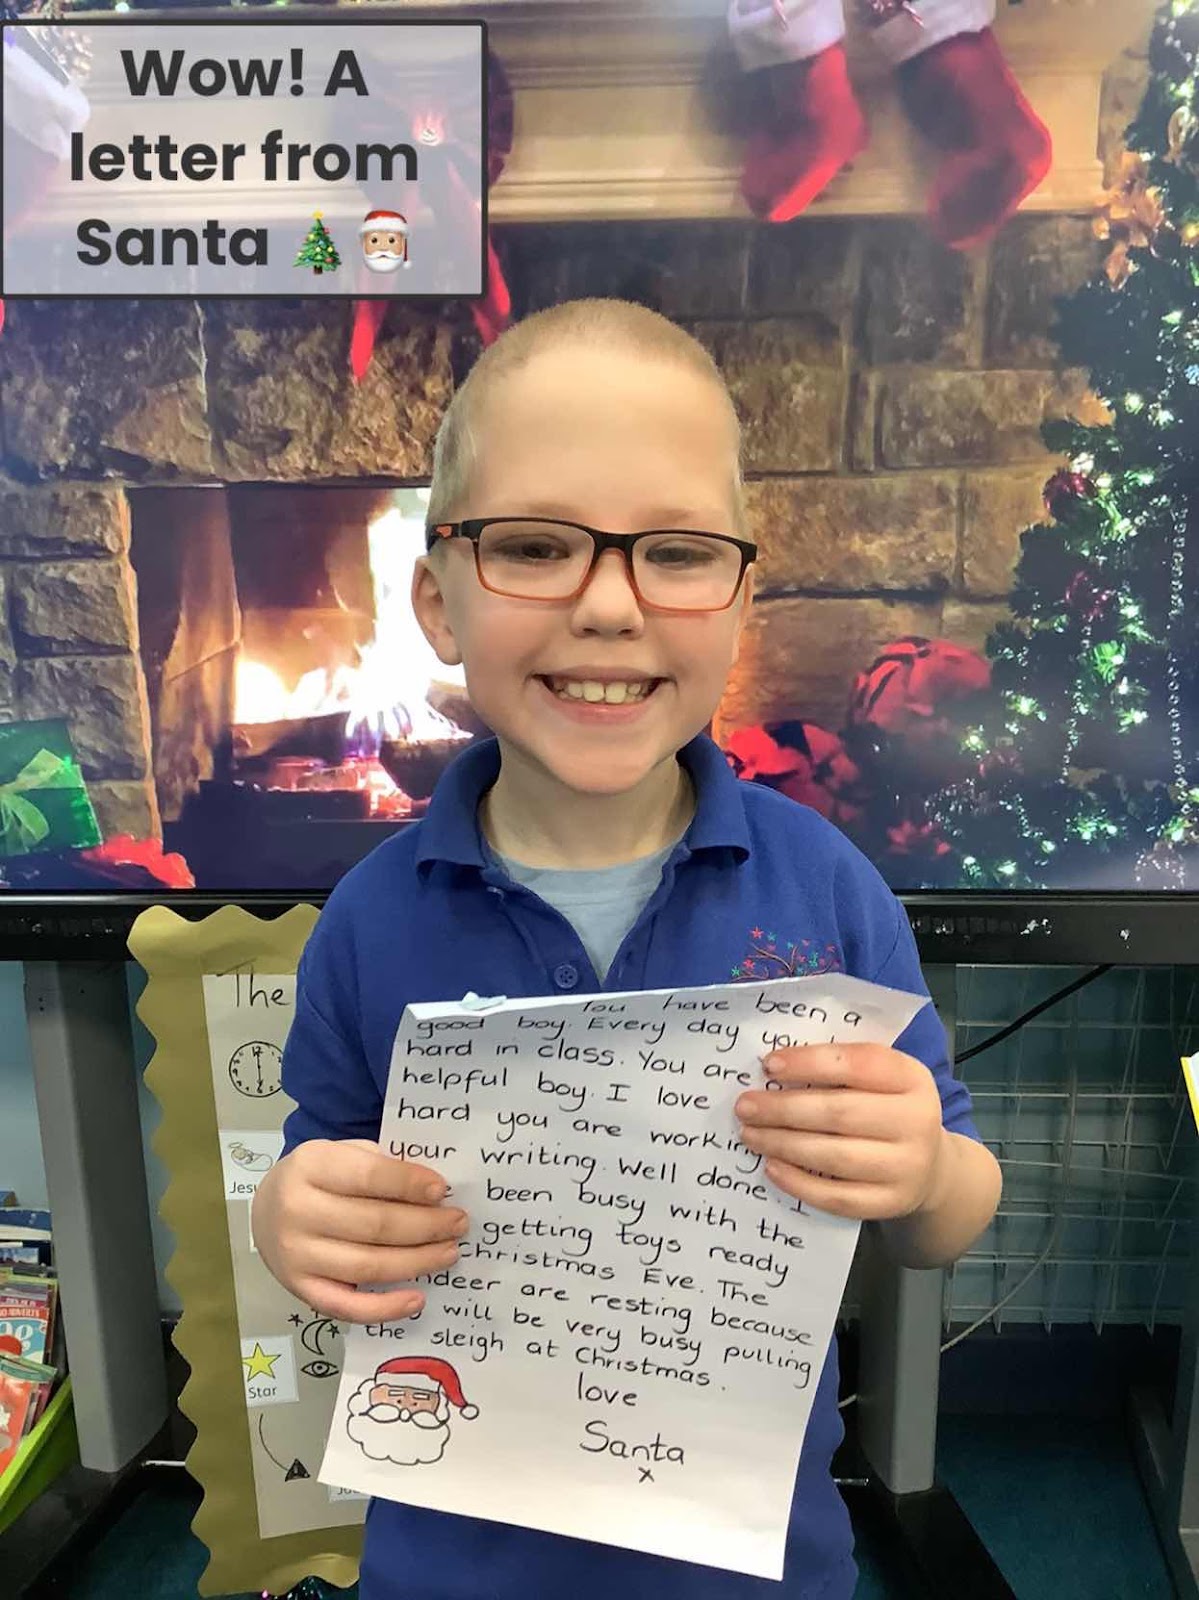 Wow! A
letter from
Santa 🎄🎅🏼
You have been a
good boy. Every day you
hard in class. You are a
helpful boy. I love
hard you are working
your writing. Well done. I
been busy with the
getting toys ready
Christmas Eve. The
ndeer are resting because
will be very busy pulling
the sleigh at Christmas.
love
Santa
x
The
Jesu
Star